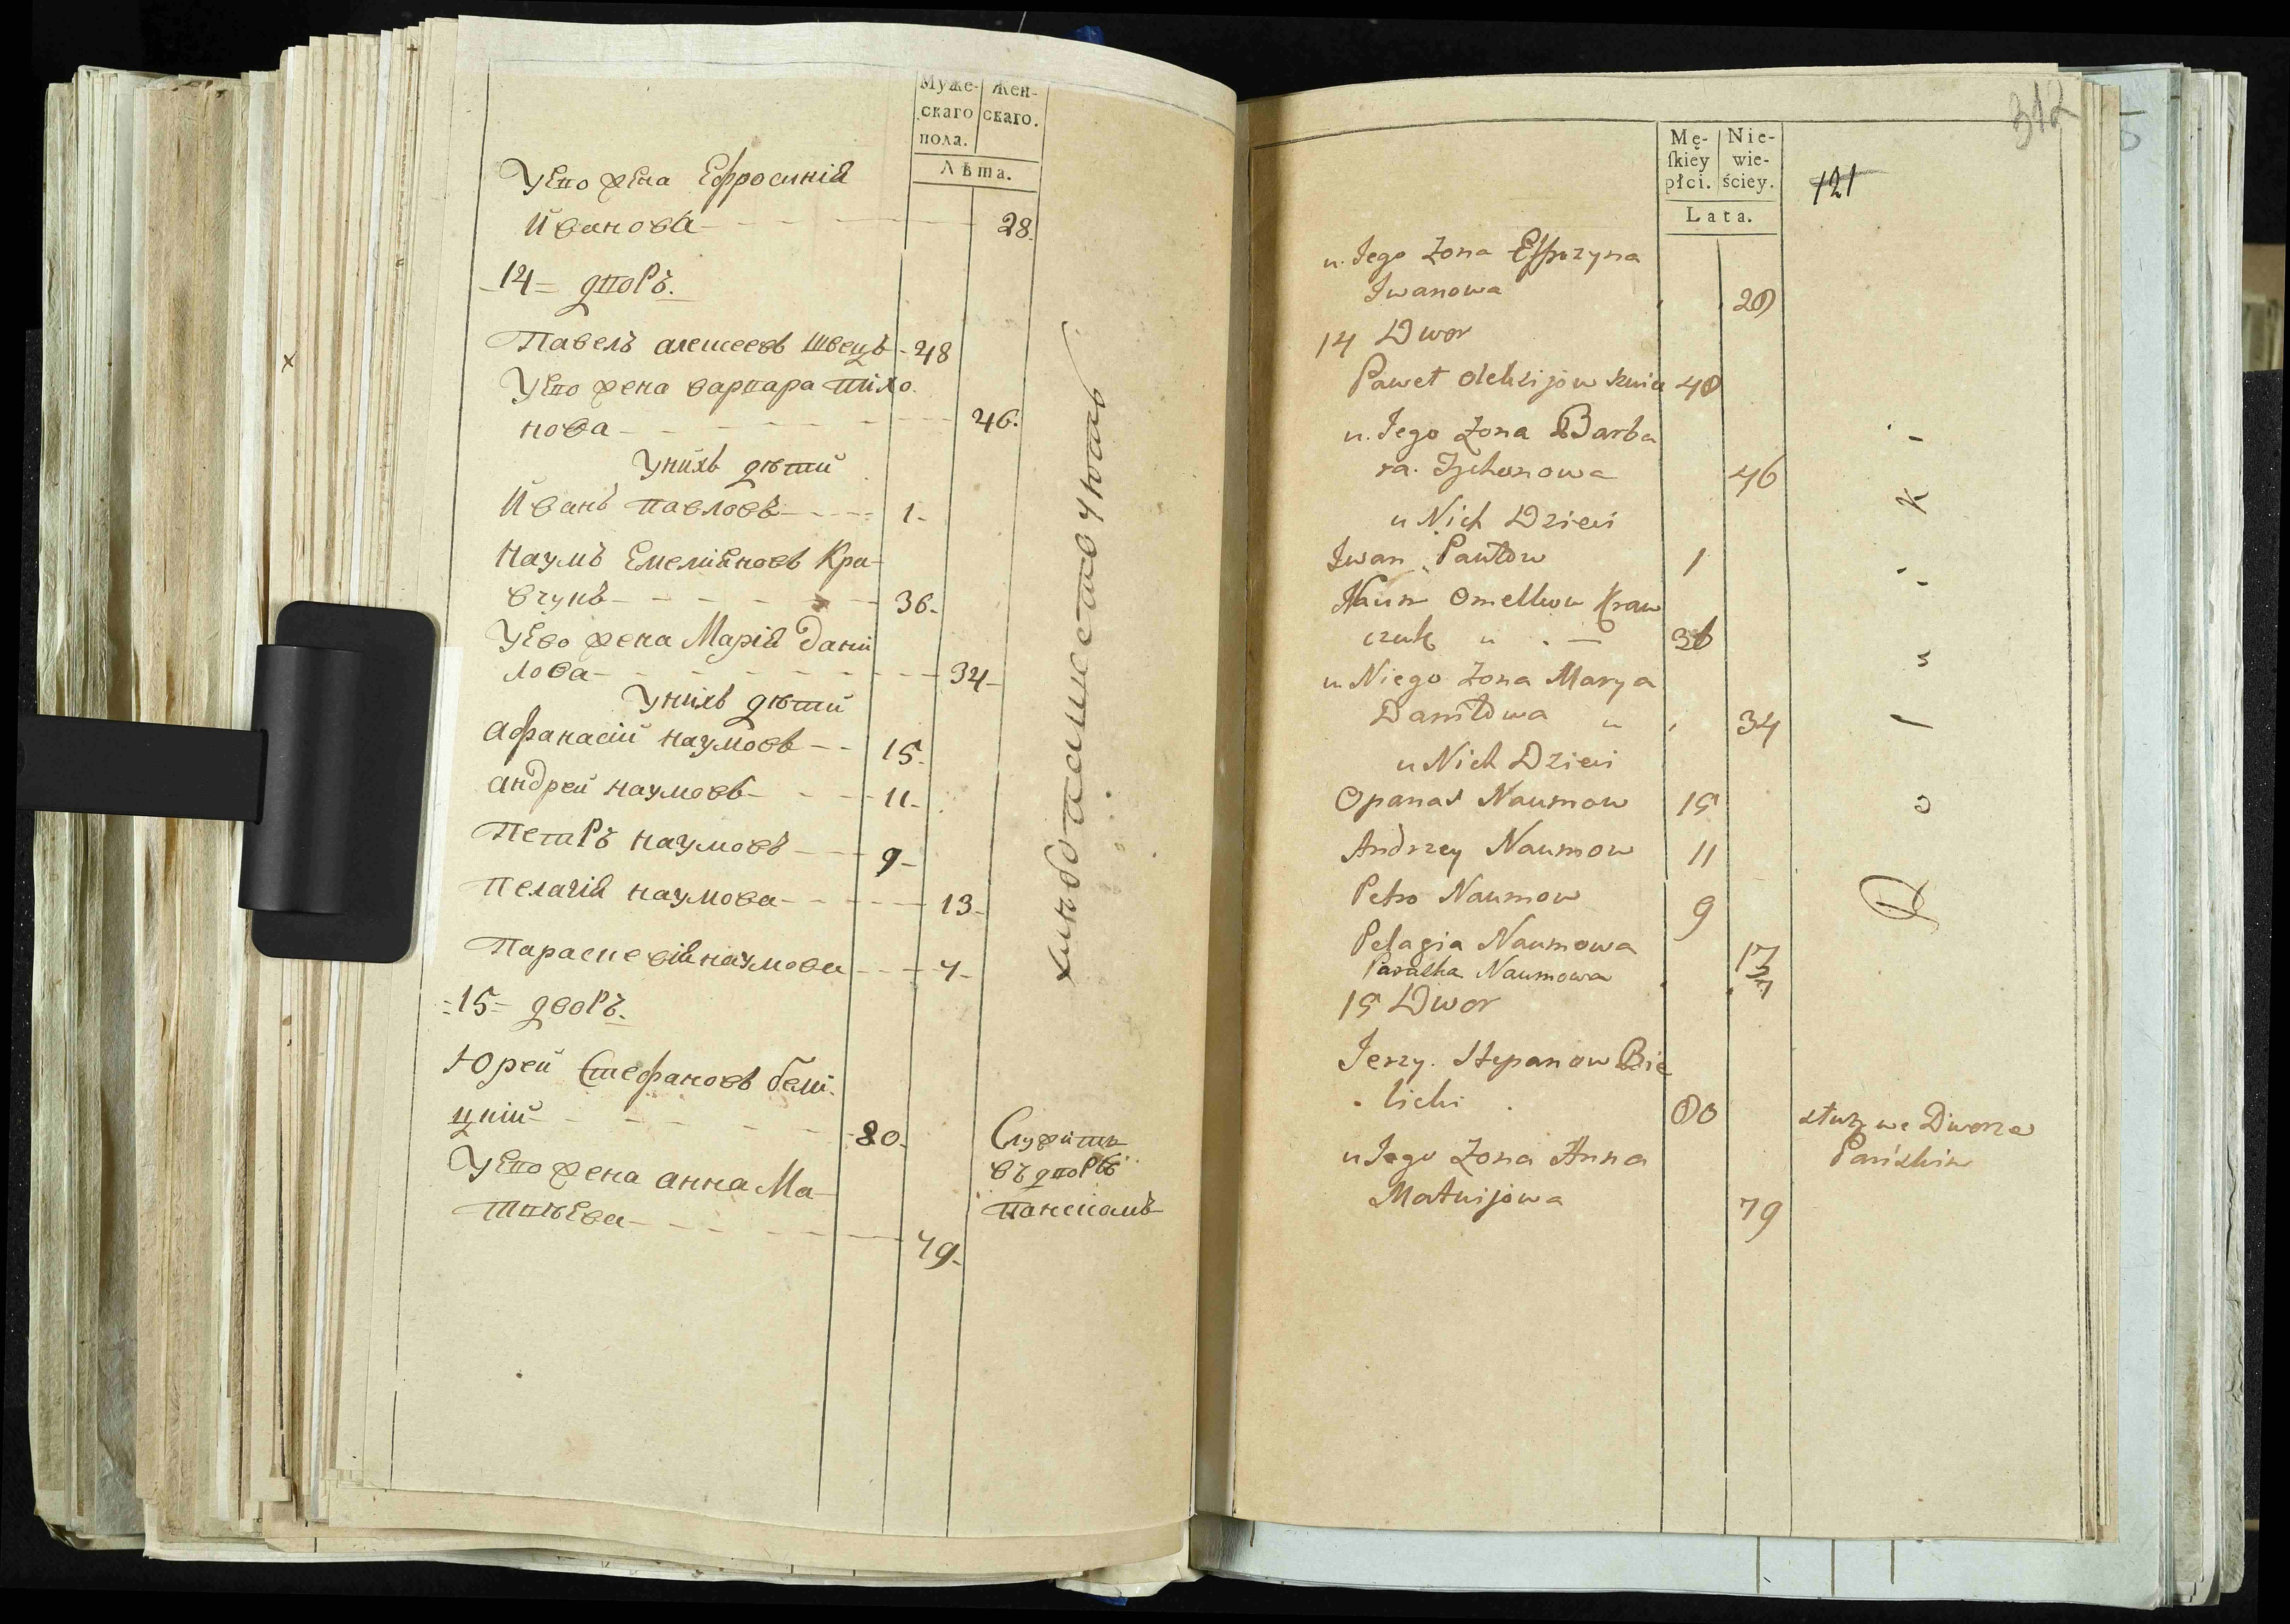 Муже-
скаго
пола.
Жен-
скаго.
Лѣта.
Уево жена Ефросинія
Иванова 28.
14 = дворъ.
Павелъ алексеевъ Швецъ 48
Уево жена варвара тихо
нова 46.
Унихъ дѣти
Иванъ павловъ 1.
Наумъ Емеліяновъ Кра-
вчукъ 36.
Уево жена Марія Дани
лова 34
Унихъ дѣти
Афанасій наумовъ 15.
андрей наумовъ 11
Петръ наумовъ 9
Пелагія наумова 13
Параскевія наумова 7
= 15 = дворъ.
Юрей Стефановъ бели-
цкій 80.
Уево жена анна Ма-
твѣева 79.
Служитъ
въ дворѣ
панскомъ
хлибопашествуютъ
312
121
Mę-
skiey
płci.
Nie-
wie-
ściey.
Lata.
u Jego Zona Effrozyna
Iwanowa 28
14 Dwor
Paweł Olexijow 48
u Jego Zona Barba
ra Tychonowa 46
u Nich Dzieci
Iwan Pawłow 1
Naum Omelkow Kraw
czuk 36
u Niego Zona Marya
Daniłowa 34
u Nich Dzieci
Opanas Naumow 15
Andrzey Naumow 11
Petro Naumow 9
Pelagia Naumowa 13
Paraska Naumowa 7
15 Dwor
Jerzy Stepanow Bie
licki 80
u Jego Zona Anna
Matwijowa 79
służy we Dworze
Pańskim